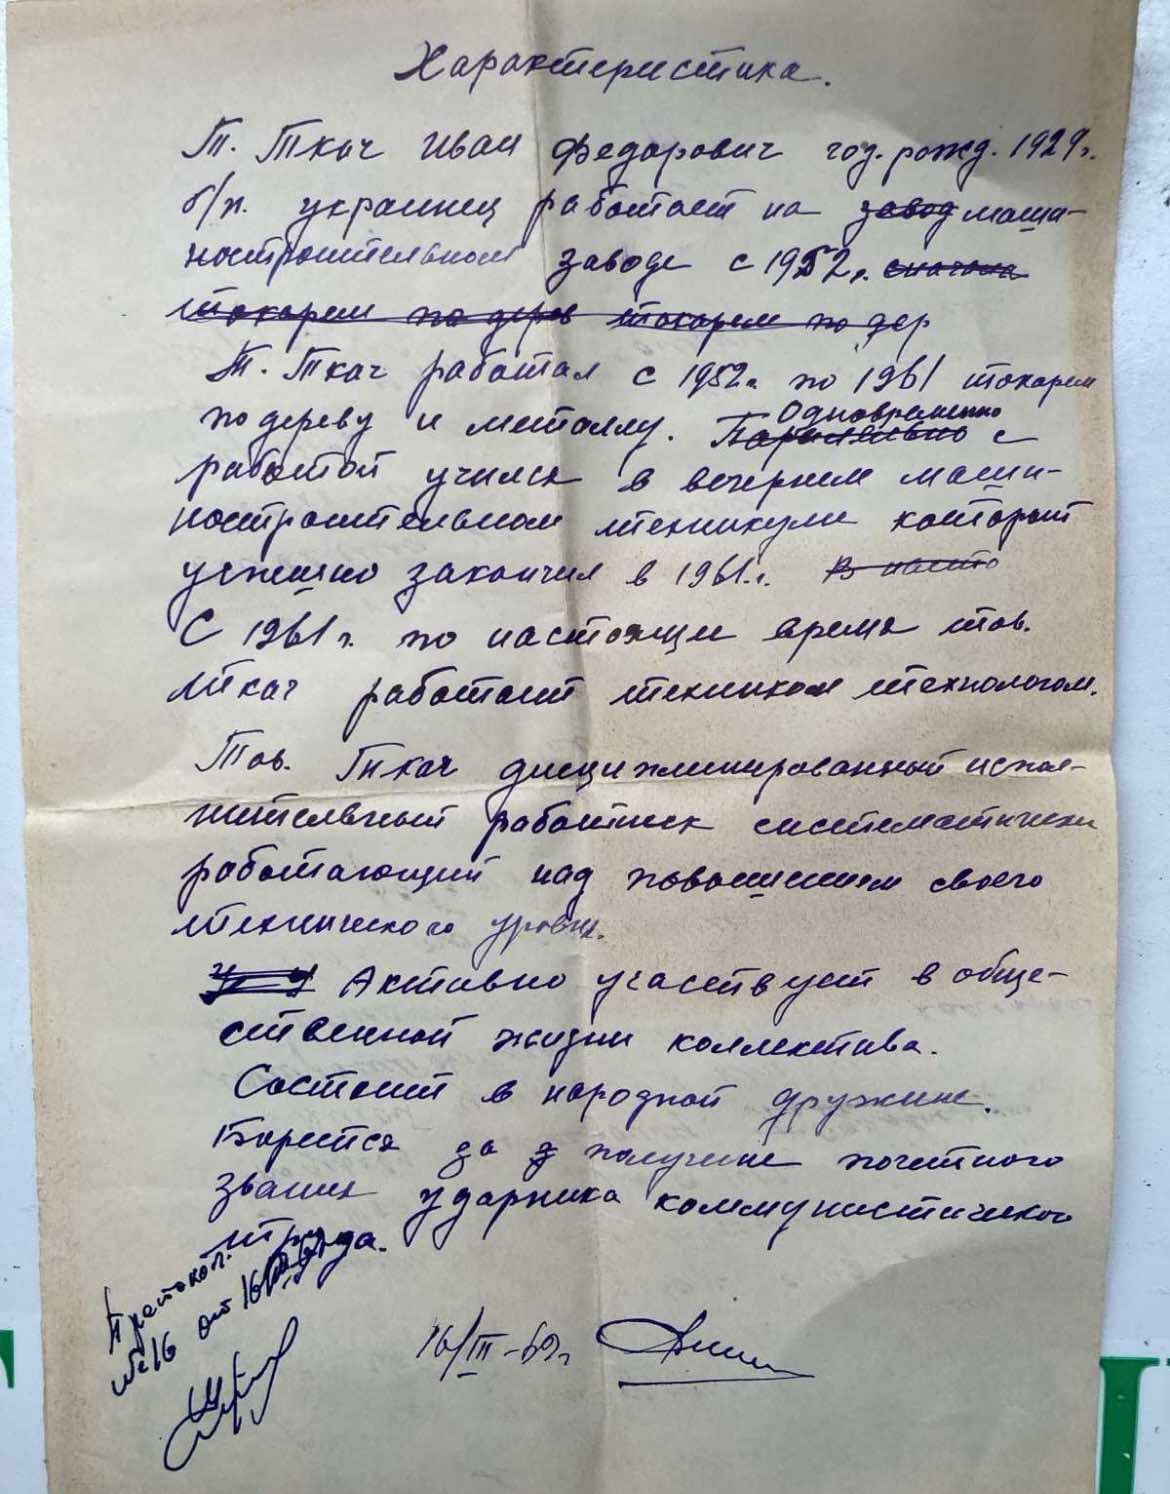 Характеристика.
Т. Ткач Иван Федарович год. рожд. 1929г.
б/п. украинец работает на завод маши-
ностроительном заводе с 1952г. сначала
токарем по дерев токарем по дер
Т. Ткач работал с 1952г по 1961 токарем
по дереву и металлу. Паралельно Одновременно с
работой учился в вечернем маши-
ностроительном техникуме который
успешно закончил в 1961.г. В насто
С 1961г. по настоящие время тов.
Ткач работает техником технологом.
Тов. Ткач дисциплинированный испол-
нительный работник систематически
работающий над повышением своего
технического уровня.
Активно участвует в обще-
ственной жизни коллектива.
Состоит в народной дружине.
Борется за з получение почетного
звания ударника коммунистического
труда.
Протокол.
№16 от 16
16/III-69г